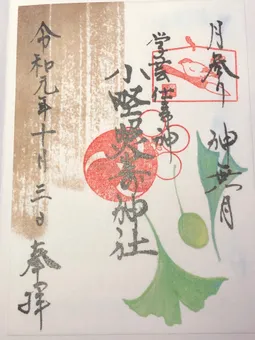 月参り 神無月
学芸仕事神
小野照崎神社
令和元年十月三日 奉拝